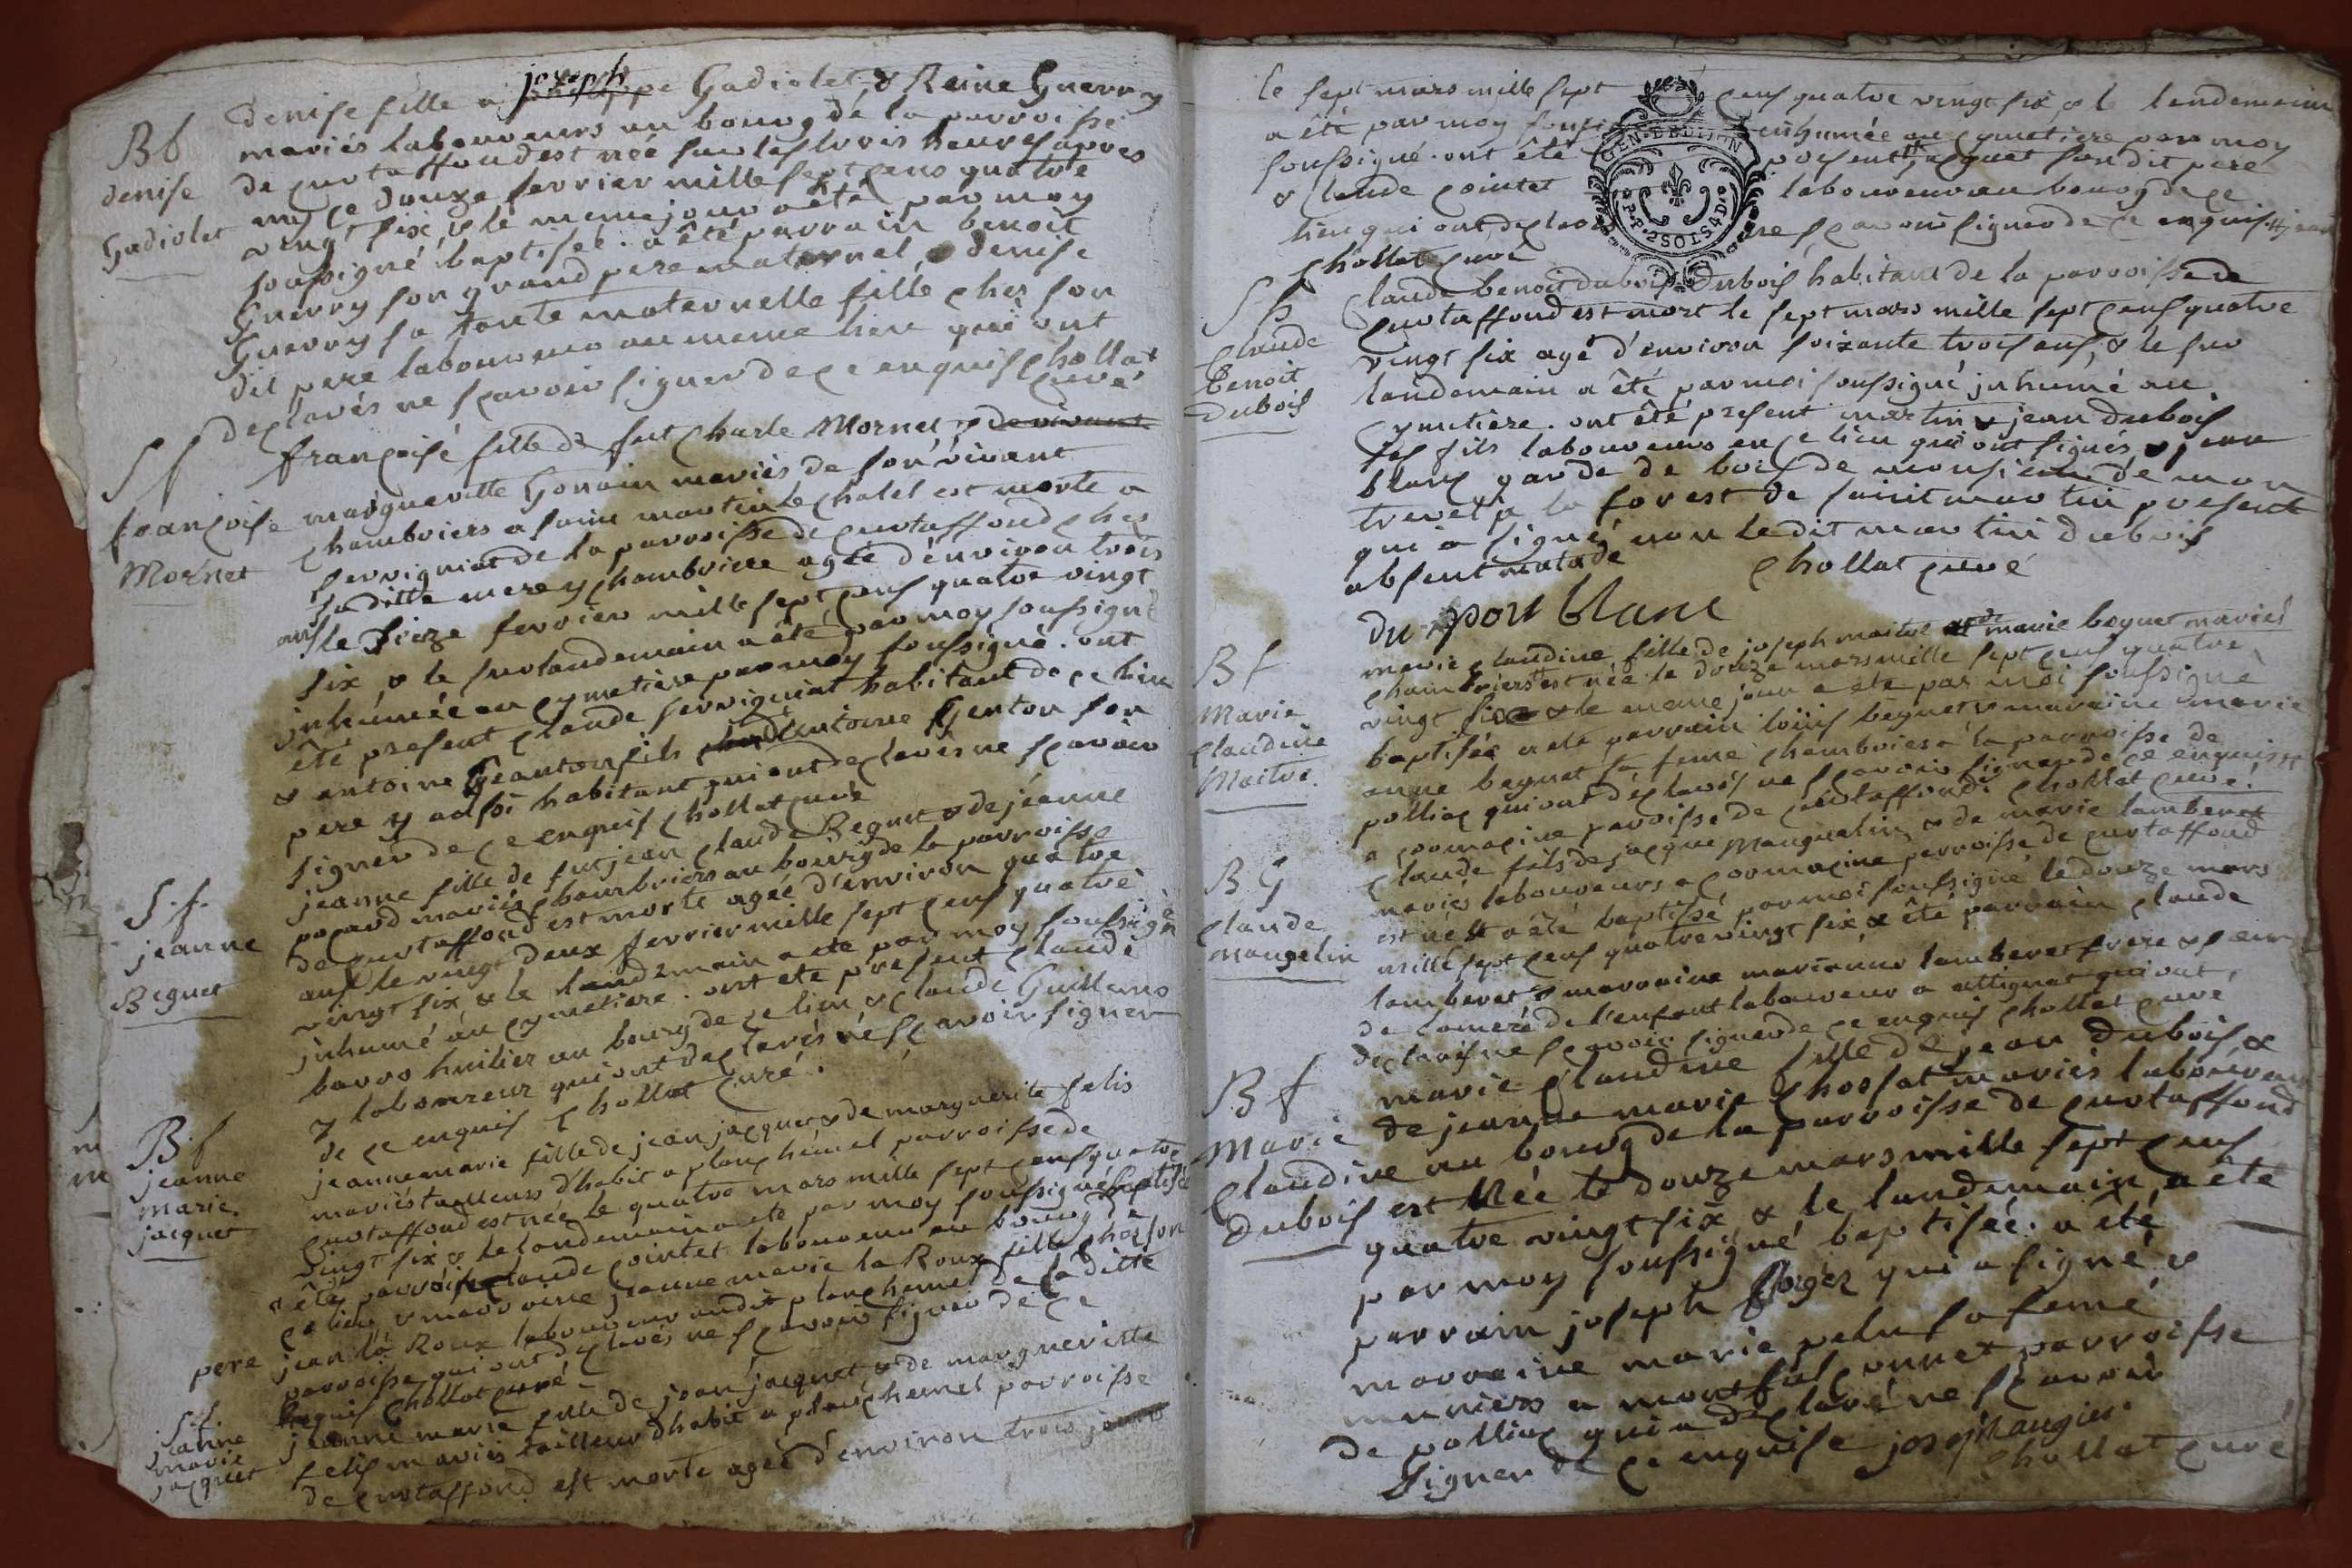 Bf
denise
Gadiolet
joseph
denise fille a Gadiolet, & Reine Guerry
mariés laboureurs au bourg de la parroisse
de curtaffond est née sur les trois heures apres
ce douze fevrier mille sept cens quatre
vingt six, & le meme jour a été par moy
soussigné baptisée. a été parrain benoit
Guerry son grand pere maternel, denise
Guerry sa tante maternelle fille ches son
dit pere laboureur au meme lieu qui ont
declarés ne scavoir signer de ce enquis chollat
curé
Sf
françoise
Mornet
françoise fille de fut charle Mornet & de vivant
margueritte Gonain mariés de son vivant
chambriers a saint martin le chatel est morte a
servigniat de la parroisse de curtaffond ches
sa ditte mere y chambriere agée d'environ trois
ans le seize fevrier mille sept cens quatre vingt
six, & le surlandemain a été par moy soussigné
inhumée au cymetiere par moy soussigné. ont
été present claude servigniat habitant de ce lieu
& antoine Geanton fils antoine Genton son
pere y aussi habitant qui ont declarés ne scavoir
signer de ce enquis chollat curé
S.f.
jeanne
Beguet
jeanne fille de fut jean claude Beguet & de jeanne
pocard mariés chambriers au bourg de la parroisse
de curtaffond est morte agée d'environ quatre
ans le vingt deux fevrier mille sept cens quatre
vingt six & le landemain a été par moy soussigné
inhumé au cymetiere. ont été present claude
barro huilier au bourg de ce lieu & claude Guillemo
y laboureur qui ont declarés ne scavoir signer
de ce enquis chollat curé.
B.f
jeanne
marie
jacquet
jeanne marie fille de jean jacquet & de marguerite felis
mariés tailleurs d'habit a planchemel parroisse de
curtaffond est née le quatre mars mille sept cens quatre
vingt six & le landemain a été par moy soussigné baptisé
a été parrain claude cointet laboureur au bourg de
ce lieu & marraine jeanne marie la Roux fille ches son
pere jean la Roux laboureur audit planchemel de la ditte
parroisse qui ont declarés ne scavoir signer de ce
enquis chollat curé
S.f.
jeanne
marie
jacquet
jeanne marie fille de jean jacquet & de margueritte
felis mariés tailleur d'habit a planchemel parroisse
de curtaffond est morte agée d'environ trois jours
le sept mars mille sept cens quatre vingt six, & le lendemain
a été par moy inhumée au cymetiere par moy
soussigné. ont été present, jacquet son dit pere
& claude cointet laboureur au bourg de ce
lieu qui ont declaré ne scavoir signer de ce enquis
chollat curé
GEN. DE DIJON
P.P. 2 SOLS 4 D.
Sh
claude
Benoit
Dubois
claude benoit dubois Dubois habitant de la parroisse de
curtaffond est mort le sept mars mille sept cens quatre
vingt six agé d'environ soixante trois ans, & le sur
landemain a été par moi soussigné inhumé au
cymetiere. ont été present martin & jean dubois
ses fils laboureurs en ce lieu qui ont signés & jean
blanc garde de bois de monsieur de mon
trevel a la forest de saint martin present
qui a signé non ledit martin dubois
absent malade chollat curé
du pon blanc
Bf
Marie
claudine
Maitre
marie claudine fille de joseph maitre & de marie beguet mariés
chambriers est née le douze mars mille sept cens quatre
vingt six & le meme jour a été par moi soussigné
baptisée a été parrain loüis beguet & maraine marie
anne beguet sa feme chambriers a la parroisse de
polliac qui ont declarés ne scavoir signer de ce enquis
a cormacine paroisse de curtaffond. chollat curé.
B G
claude
mangelin
claude fils de jacque Manguelin & de marie lamberet
mariés laboureurs a cormacine parroisse de curtaffond
est né & a été baptisé par moi soussigné le douze mars
mille sept cens quatre vingt six a été parrain claude
lamberet & marraine marianne lamberet frere & seur
de la mere de l'enfant laboureur a attignat qui ont
declarés ne scavoir signer de ce enquis chollat curé
B f
Marie
claudine
Dubois
marie claudine fille de jean dubois &
de jeanne marie chossat mariés laboureurs
au bourg de la parroisse de curtaffond
est Née le douze mars mille sept cens
quatre vingt six & le landemain a été
par moy soussigné baptisée. a été
parrain joseph qui a signé &
maraine marie pelu sa femé
muniers a parroisse
de polliac qui a declaré ne scavoir
signer de ce enquise joseph augier
chollat curé